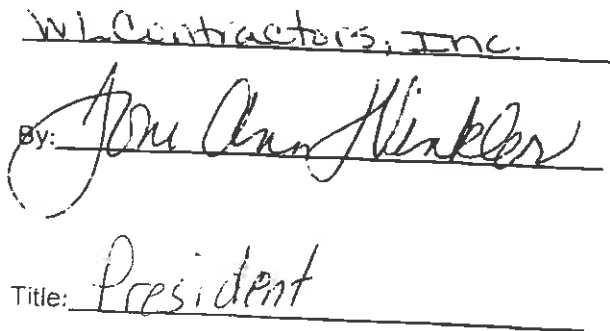 WL Contractors, Inc.
By: Toni Ann Winkler
Title: President